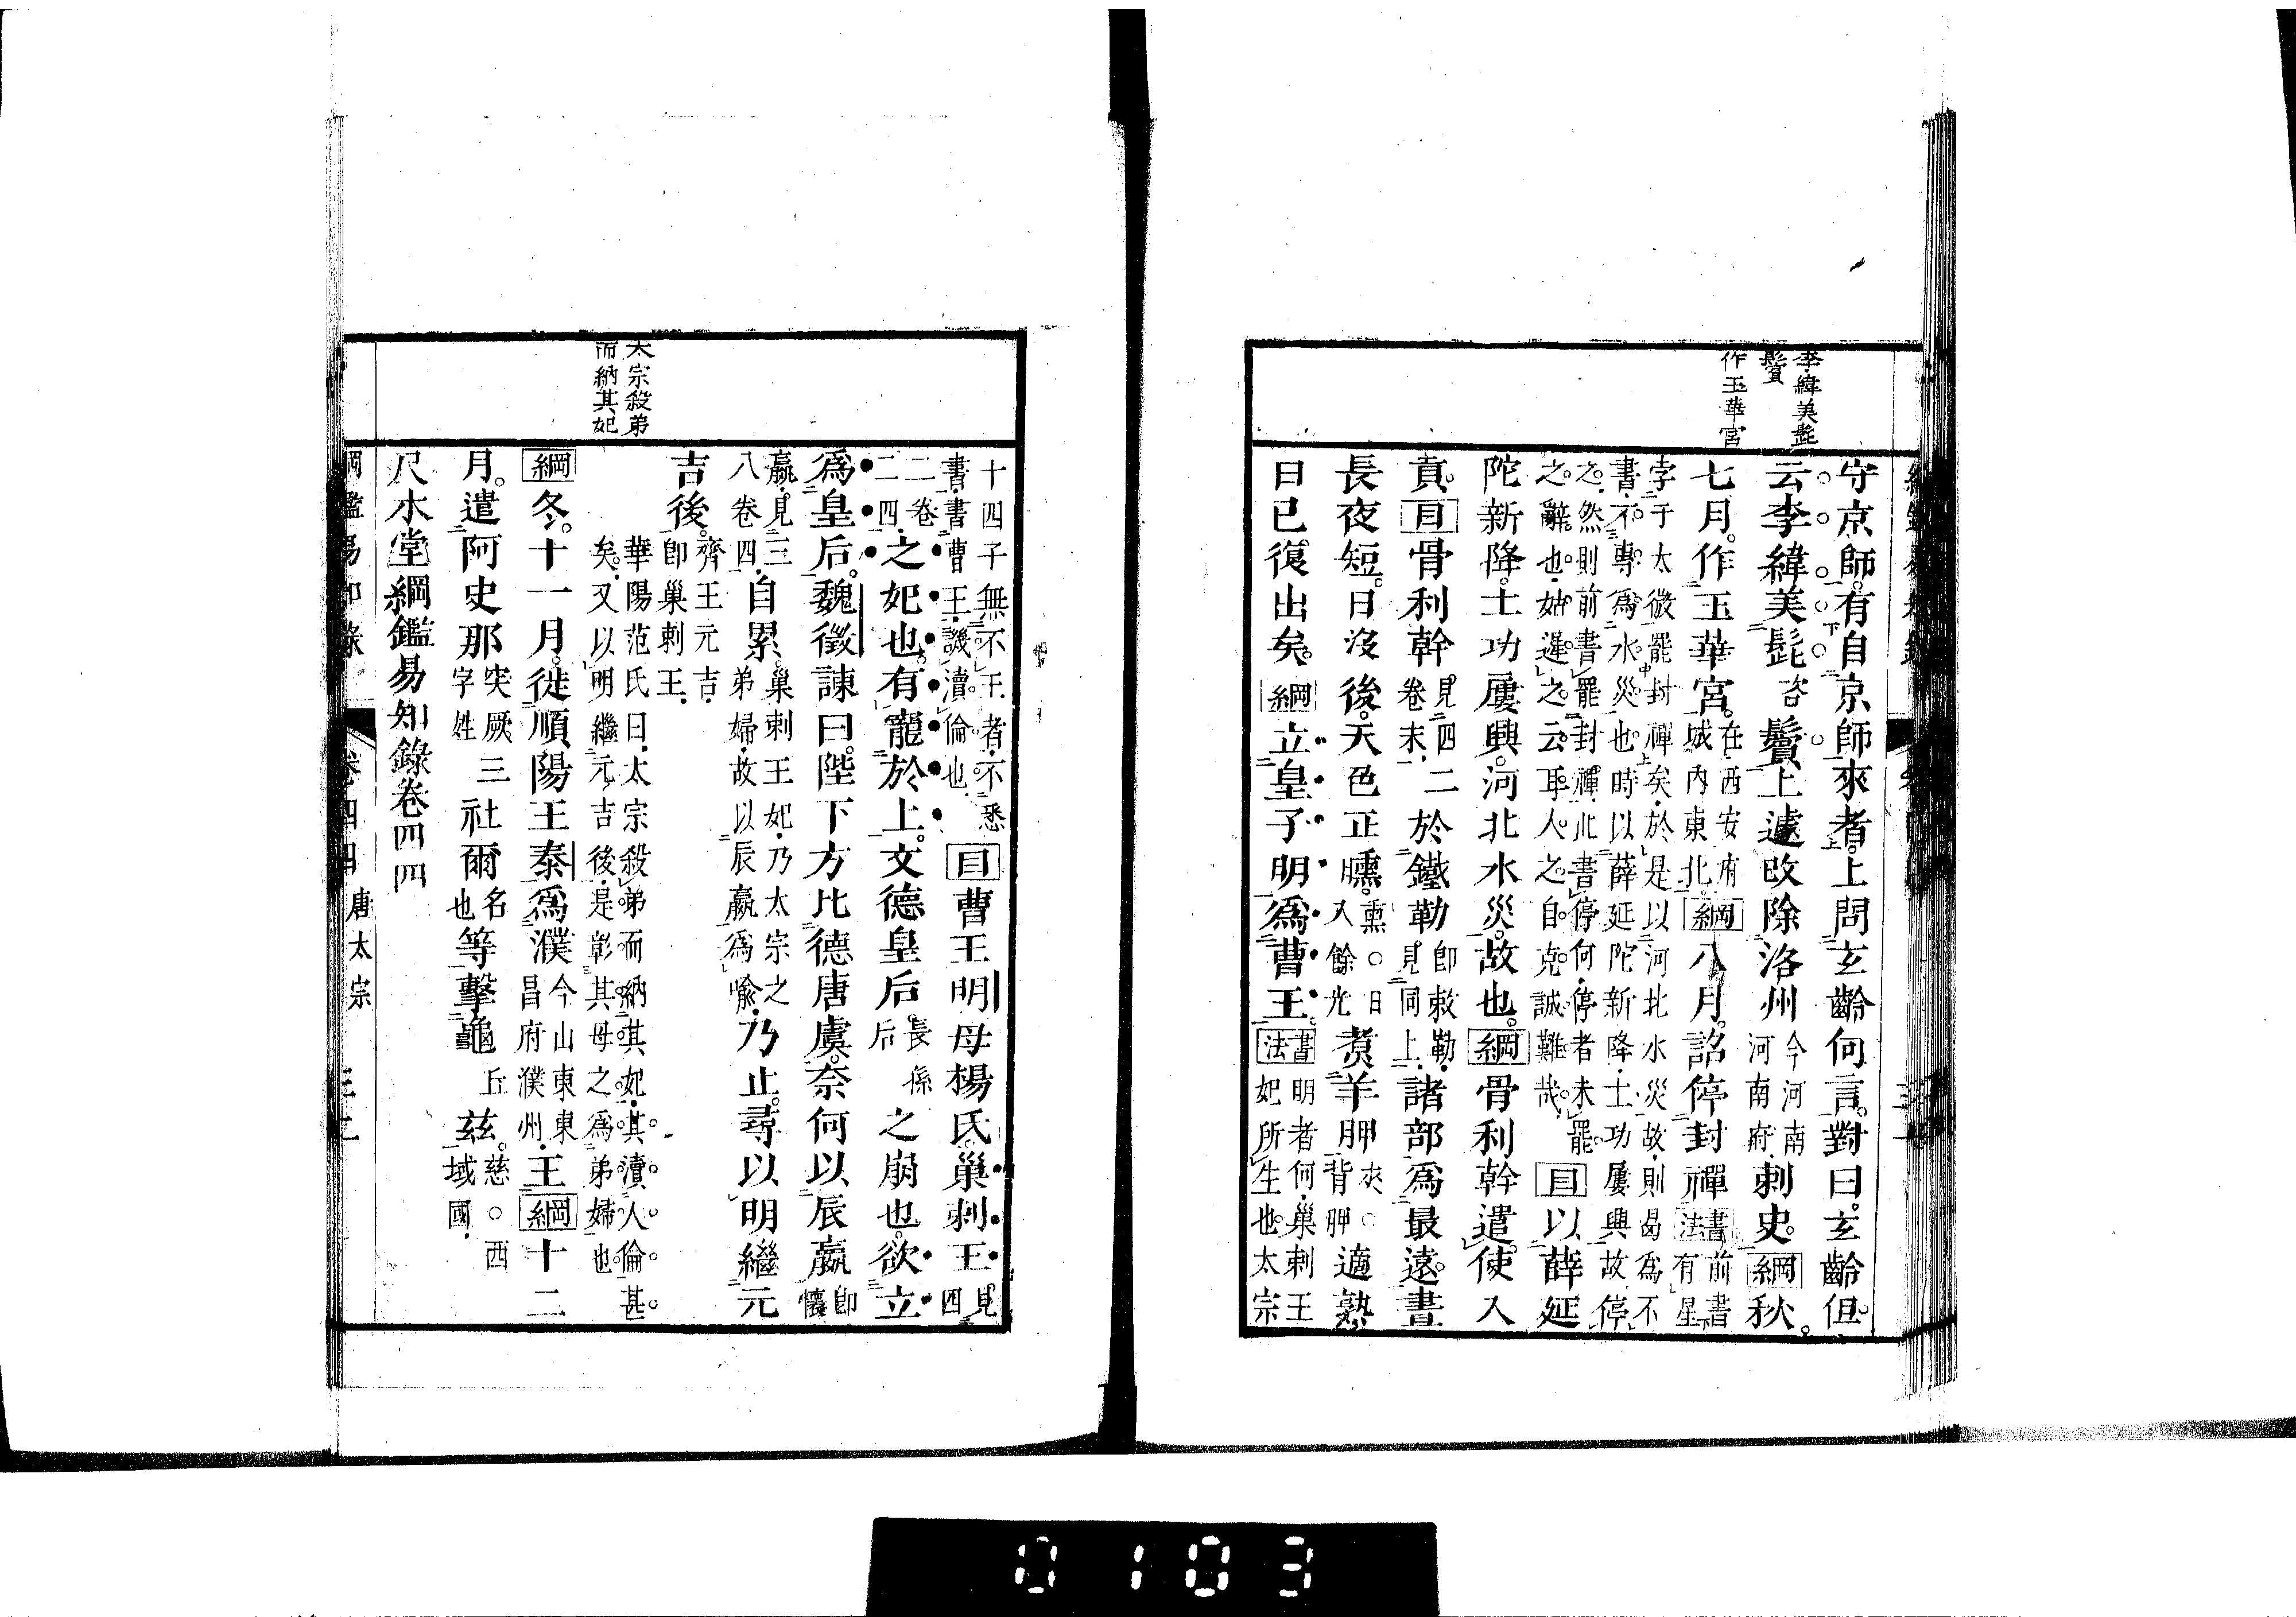 李緯美髭
鬢
作玉華宮
守京師。有自京師來者。上問玄齡何言。對曰。玄齡但
云李緯美髭咨鬢。上遽改除洛州今河南河南府。刺史。綱秋。
七月。作玉華宮。在西安府城內東北。綱八月。詔停封禪書法前書有星
孛于太微罷封禪矣。於是以河北水災故。則曷為不
書。不專為水災也。時以薛延陀新降。土功屢興故。停
之。然則前書罷封禪。此書停何。停者未罷
之辭也。姑遲之云耳。人之自克誠難哉。目以薛延
陀新降。土功屢興。河北水災。故也。綱骨利幹遣使入
貢。目骨利幹見四二卷末。於鐵勒卽敕勒。見同上。諸部爲最遠。晝
長夜短。日沒後。天色正曛。熏。○日入餘光煑羊胛夾。○背胛適熟
日已復出矣。綱立皇子明爲曹王。書法明者何。巢剌王妃所生也。太宗
十四子無不王者。不悉
書。書曹王。譏瀆倫也。目曹王明母楊氏。巢剌王見四
二卷二四。之妃也。有寵於上。文德皇后。長孫后之崩也。欲立
爲皇后。魏徵諫曰。陛下方比德唐虞。奈何以辰嬴卽懷
嬴。見三八卷四。自累。巢剌王妃。乃太宗之弟婦。故以辰嬴爲喩。乃止。尋以明繼元
吉後。齊王元吉。卽巢剌王。
華陽范氏曰。太宗殺弟而納其妃。其瀆人倫甚
矣。又以明繼元吉後。是彰其母之爲弟婦也。
綱冬。十一月。徙順陽王泰爲濮今山東東昌府濮州。王綱十二
月。遣阿史那突厥三字姓社爾名也等擊龜丘茲。慈。○西域國。
尺木堂綱鑑易知錄卷四四
太宗殺弟
而納其妃
綱鑑易知錄
卷四四
唐太宗
0103